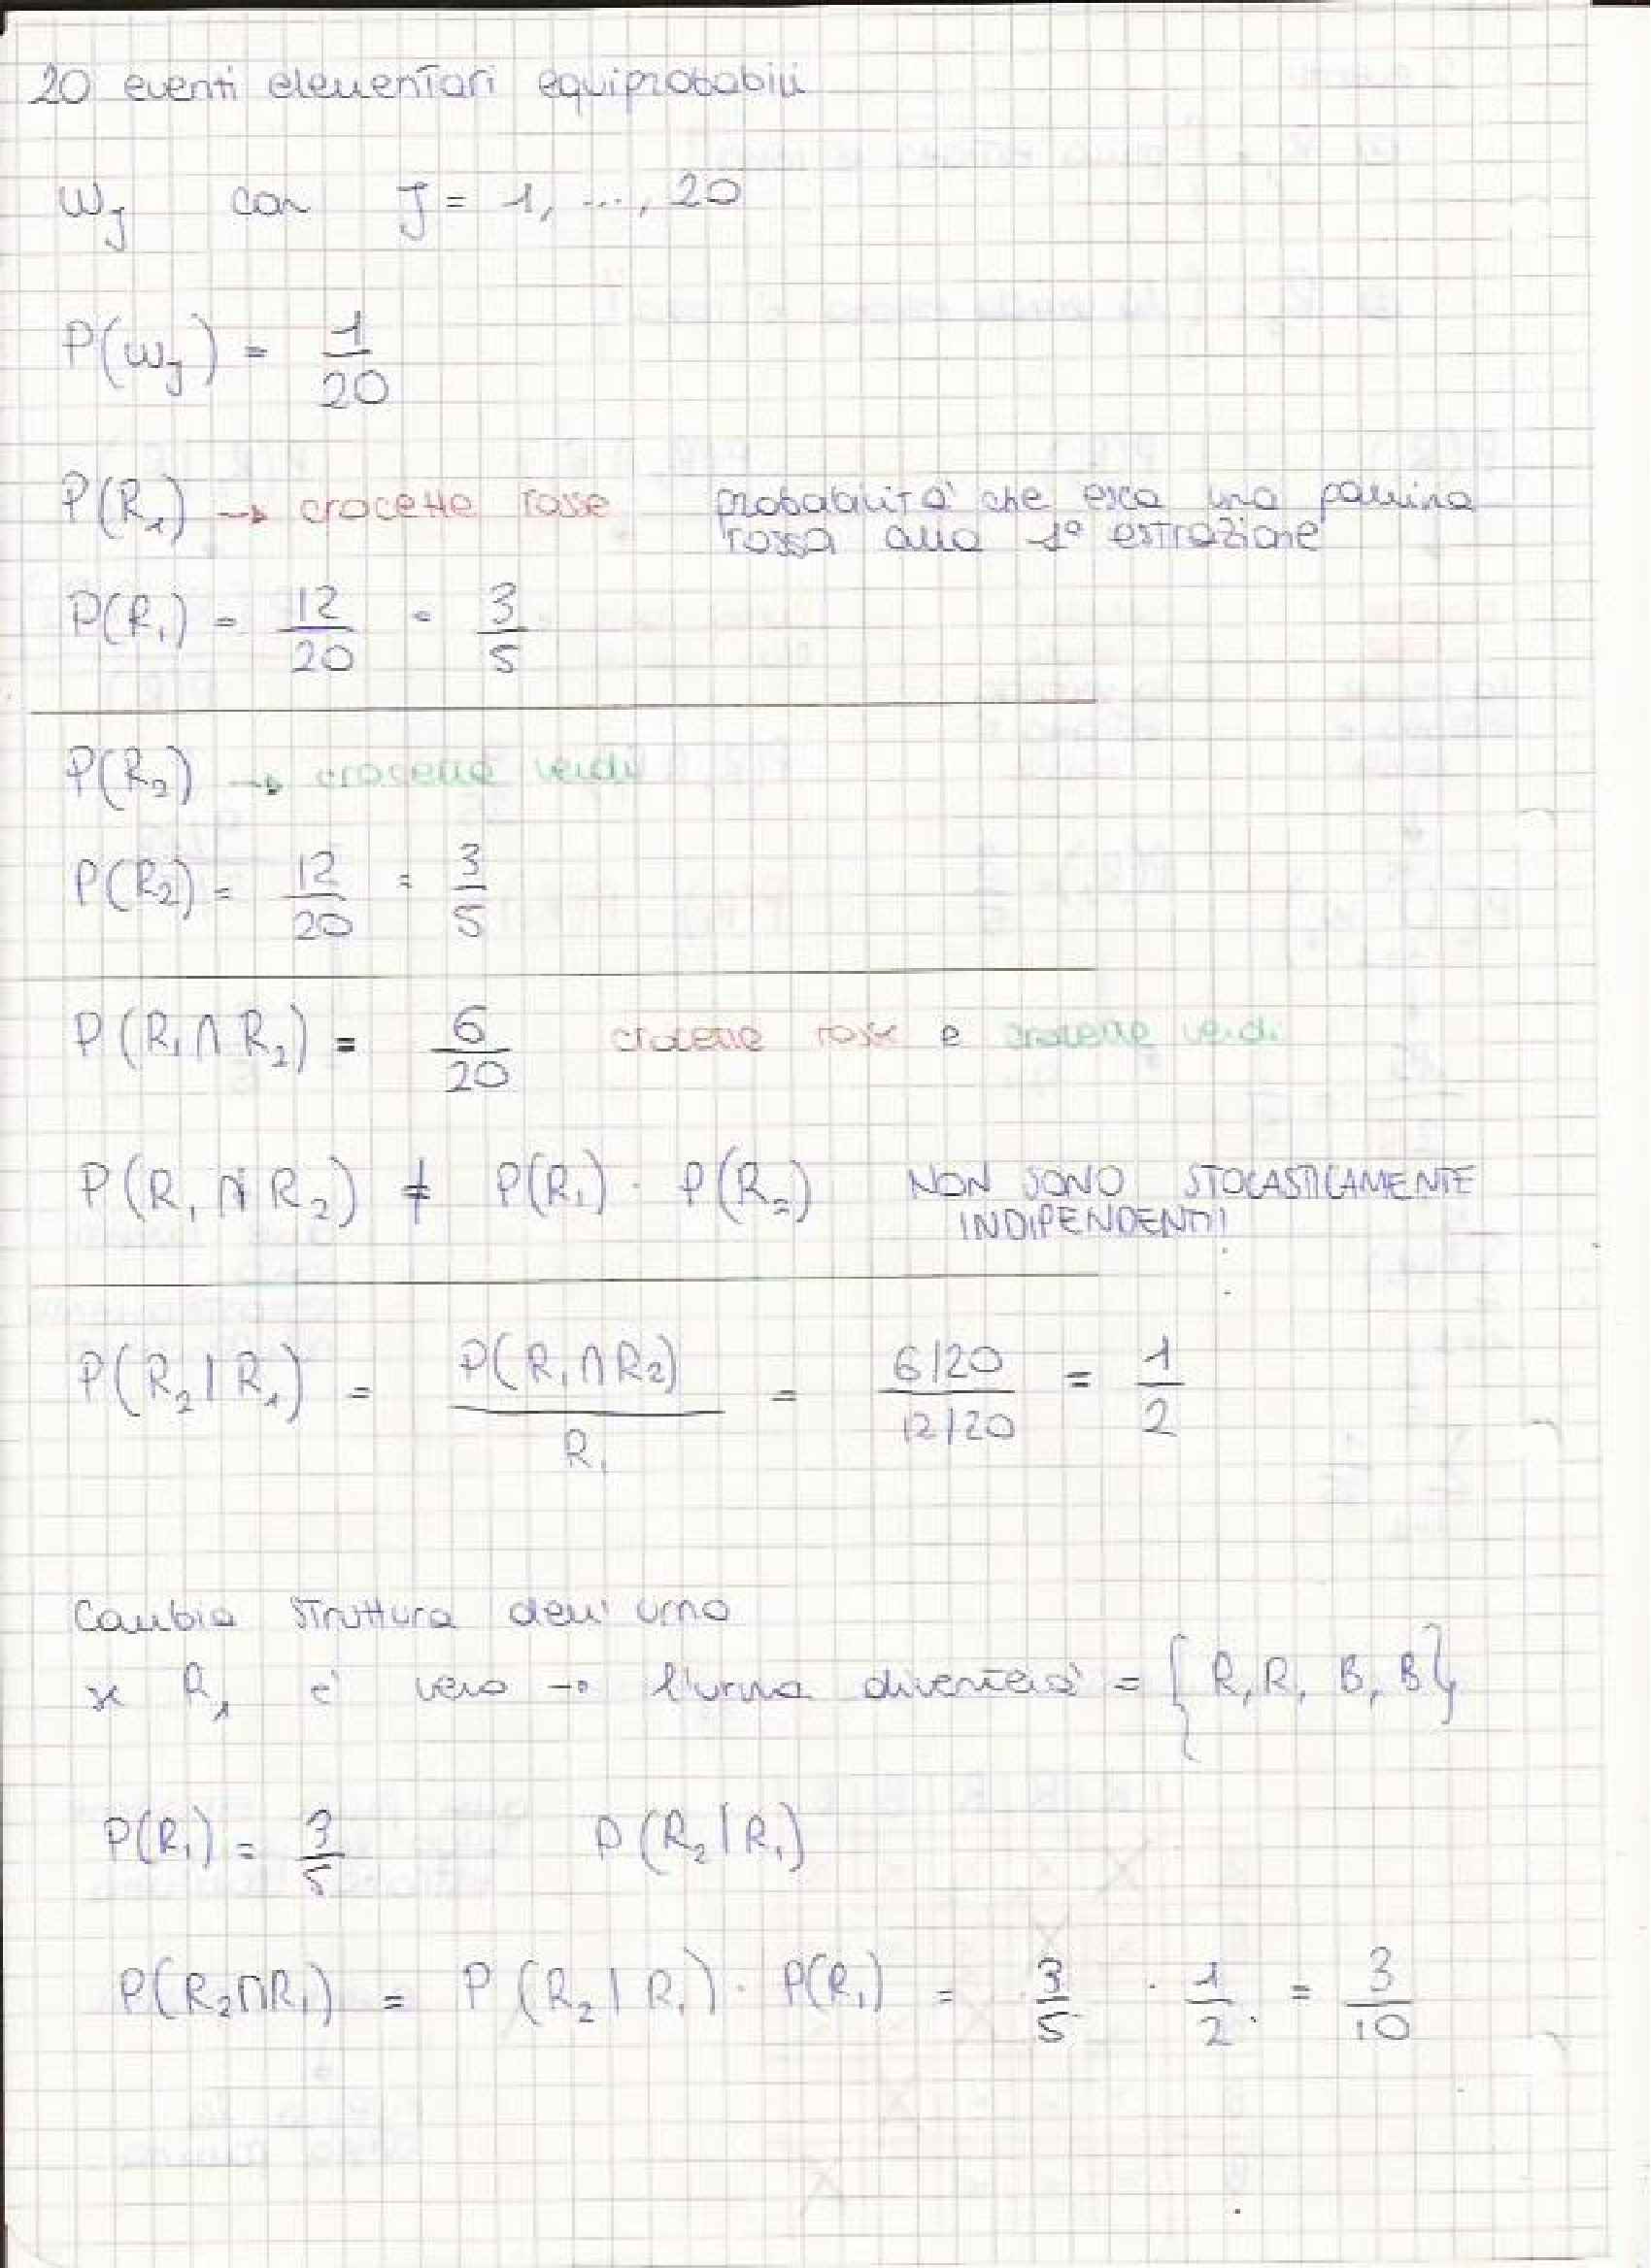 20 eventi elementari equiprobabili
ωj con J = 1, ..., 20
P(ωj) = 1/20
P(R1) → crocette rosse probabilità che esca una pallina
rossa alla 1ª estrazione
P(R1) = 12/20 = 3/5
P(R2) → crocette verdi
P(R2) = 12/20 = 3/5
P(R1 ∩ R2) = 6/20 crocette rosse e crocette verdi
P(R1 ∩ R2) ≠ P(R1) · P(R2) NON SONO STOCASTICAMENTE
INDIPENDENTI!
P(R2 | R1) = P(R1 ∩ R2)/R1 = 6/20/12/20 = 1/2
Cambia struttura dell'urna
se R1 è vero → l'urna diventerà = { R, R, B, B }
P(R1) = 3/5 P(R2 | R1)
P(R2 ∩ R1) = P(R2 | R1) · P(R1) = 3/5 · 1/2 = 3/10